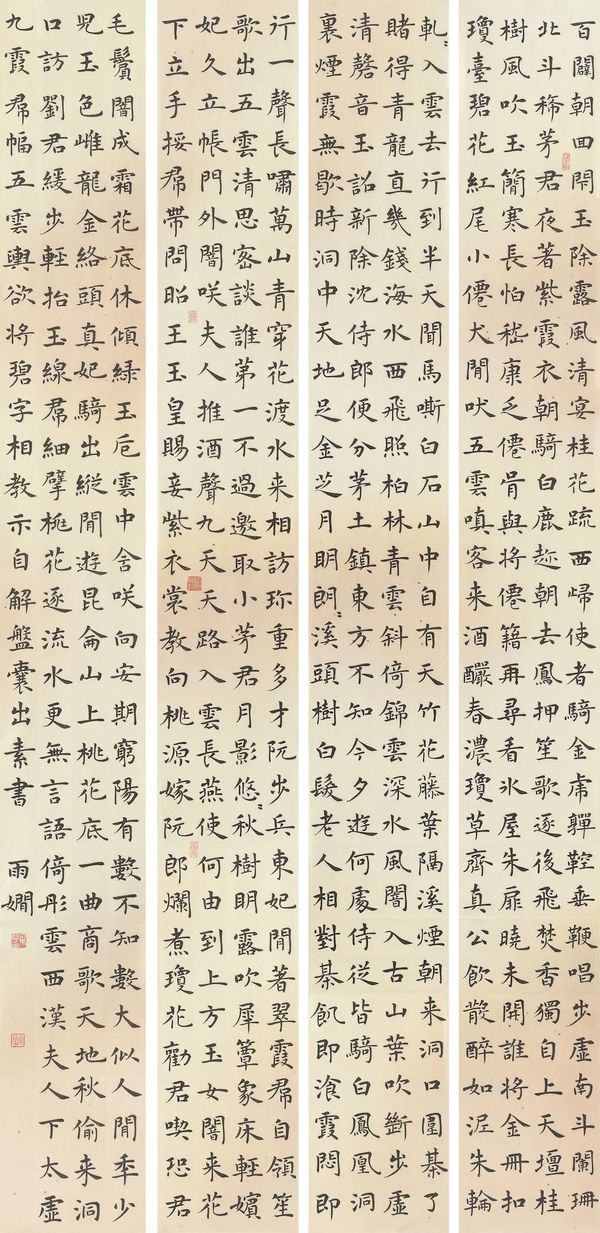 百闢朝回閉玉除露風清宴桂花疏西歸使者騎金虎嚲鞚垂鞭唱步虛南斗闌珊
北斗稀茅君夜著紫霞衣朝騎白鹿趂朝去鳳押笙歌逐後飛焚香獨自上天壇桂
樹風吹玉簡寒長怕嵇康乏僊骨與將僊籍再尋看氷屋朱扉曉未開誰將金冊扣
瓊臺碧花紅尾小僊犬閒吠五雲嗔客来酒釅春濃瓊草齊真公飲散醉如泥朱輪
軋〻入雲去行到半天聞馬嘶白石山中自有天竹花藤葉隔溪煙朝来洞口圍棊了
賭得青龍直幾錢海水西飛照柏林青雲斜倚錦雲深水風闇入古山葉吹斷步虛
清磬音玉詔新除沈侍郎便分茅土鎮東方不知今夕遊何處侍從皆騎白鳳凰洞
裏煙霞無歇時洞中天地足金芝月明朗〻溪頭樹白髮老人相對棊飢即飡霞悶即
行一聲長嘯萬山青穿花渡水来相訪珎重多才阮步兵東妃閒著翠霞帬自領笙
歌出五雲清思密談誰第一不過邀取小茅君月影悠〻秋樹明露吹犀簟象床輕嬪
妃久立帳門外闇咲夫人推酒聲九天天路入雲長燕使何由到上方玉女闇来花
下立手挼帬帶問昭王玉皇賜妾紫衣裳教向桃源嫁阮郎爛煮瓊花勸君喫恐君
毛鬢闇成霜花底休傾綠玉卮雲中含咲向安期窮陽有數不知數大似人閒季少
兒玉色雌龍金絡頭真妃騎出縱閒遊昆侖山上桃花底一曲商歌天地秋偷来洞
口訪劉君緩步輕抬玉線帬細擘桃花逐流水更無言語倚彤雲西漢夫人下太虛
九霞帬幅五雲輿欲將碧字相教示自解盤囊出素書 雨嫺